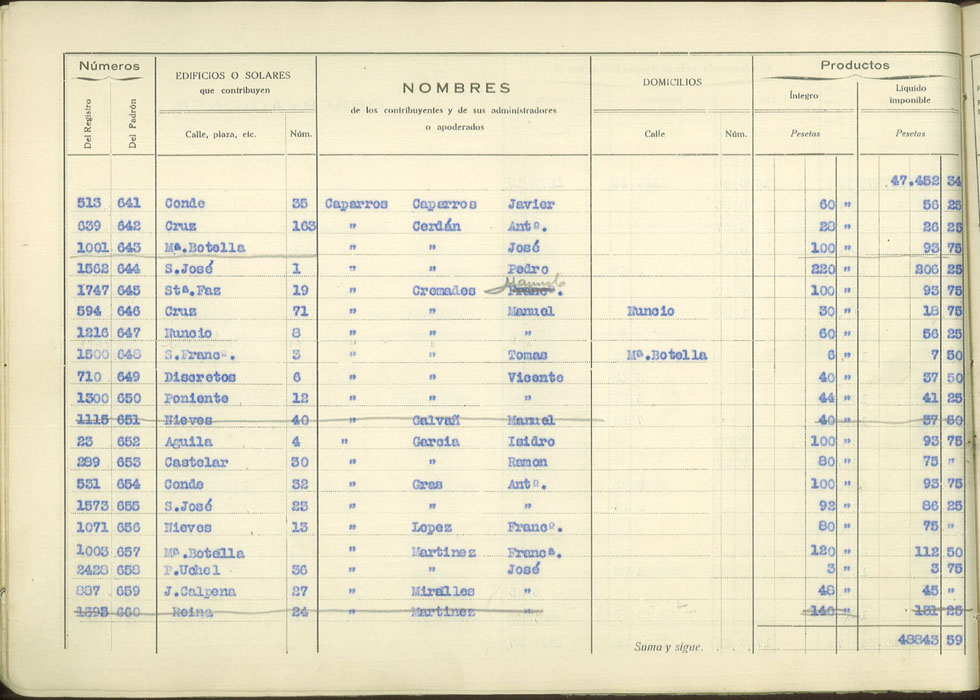 Números EDIFICIOS O SOLARES que contribuyen NOMBRES de los contribuyentes y de sus administradores o apoderados DOMICILIOS Productos
Del Registro Del Padrón Calle, plaza, etc. Núm. Calle Núm. Íntegro Líquido imponible
Pesetas Pesetas
47.452 34
513 641 Conde 35 Caparros Caparros Javier 60 " 56 25
639 642 Cruz 163 " Cerdán Antº. 28 " 26 25
1001 643 Mª.Botella " " José 100 " 93 75
1562 644 S.José 1 " " Pedro 220 " 206 25
1747 645 Stª.Faz 19 " Cremades Francº. Manuel 100 " 93 75
594 646 Cruz 71 " " Manuel Nuncio 30 " 18 75
1216 647 Nuncio 8 " " " 60 " 56 25
1500 648 S.Francº. 3 " " Tomas Mª.Botella 6 " 7 50
710 649 Discretos 6 " " Vicente 40 " 37 50
1300 650 Poniente 12 " " " 44 " 41 25
1115 651 Nieves 40 " Galvañ Manuel 40 " 37 50
23 652 Aguila 4 " Garcia Isidro 100 " 93 75
289 653 Castelar 30 " " Ramon 80 " 75 "
531 654 Conde 32 " Gras Antº. 100 " 93 75
1573 655 S.José 23 " " " 92 " 86 25
1071 656 Nieves 13 " Lopez Francº. 80 " 75 "
1003 657 Mª.Botella " Martinez Francª. 120 " 112 50
2428 658 P.Uchel 36 " " José 3 " 3 75
887 659 J.Calpena 27 " Miralles " 48 " 45 "
1393 660 Reina 24 " Martinez " 140 " 131 25
Suma y sigue. 48843 59